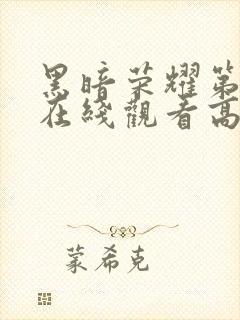 黑暗荣耀第
在綫觀看高
蒙希克